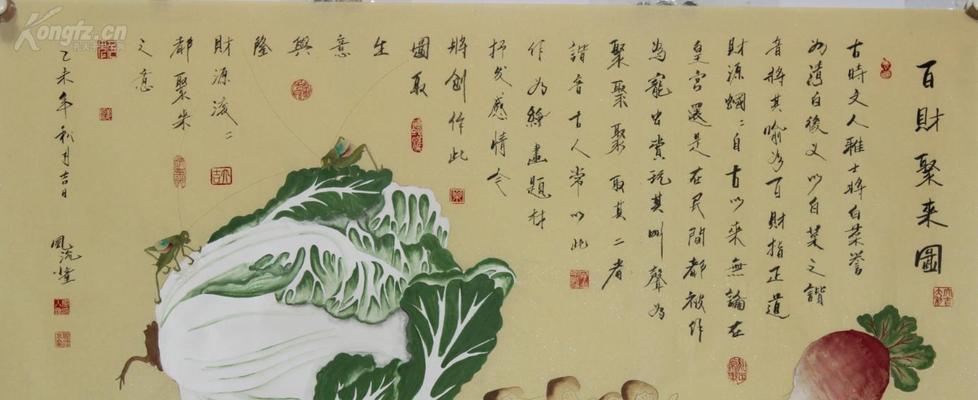 百財聚來圖
古時文人雅士將白菜譽
為清白後又以白菜之諧
音將其喻為百財指正道
財源蟈二自古以來無論在
皇宮還是在民間都被作
為寵出賞玩其叫聲為
聚聚聚取其二者
諧音古人常以此
作為繪畫題材
抒發感情今
將創作此
圖取
生
意
興
隆
財源滚二
都聚來
之意
乙未年秋月吉日
風流堂
Kongfz.cn